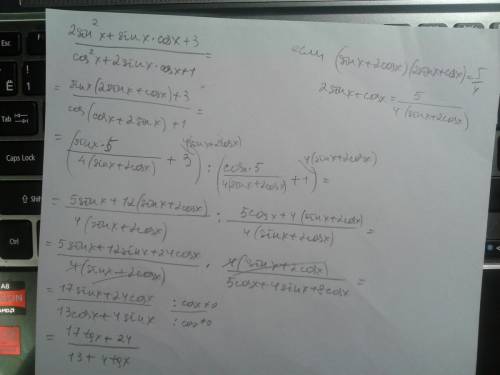 2sin²x + sinx·cosx + 3 / cos²x + 2sinx·cosx + 1 =
если (sinx + 2cosx)(2sinx + cosx) = 5/4
2sinx + cosx = 5 / 4(sinx + 2cosx)
= sinx(2sinx + cosx) + 3 / cos(cosx + 2sinx) + 1 =
= (sinx·5 / 4(sinx + 2cosx) + 3^{4(sinx + 2cosx)}) : (cosx·5 / 4(sinx + 2cosx) + 1^{4(sinx + 2cosx)}) =
= 5sinx + 12(sinx + 2cosx) / 4(sinx + 2cosx) : 5cosx + 4(sinx + 2cosx) / 4(sinx + 2cosx) =
= 5sinx + 12sinx + 24cosx / 4(sinx + 2cosx) · 4(sinx + 2cosx) / 5cosx + 4sinx + 8cosx =
= 17sinx + 24cosx / 13cosx + 4sinx : cosx≠0 : cos≠0
= 17tgx + 24 / 13 + 4tgx
Esc
Ё
Tab
Caps Lock
Shift
Ctrl
A8